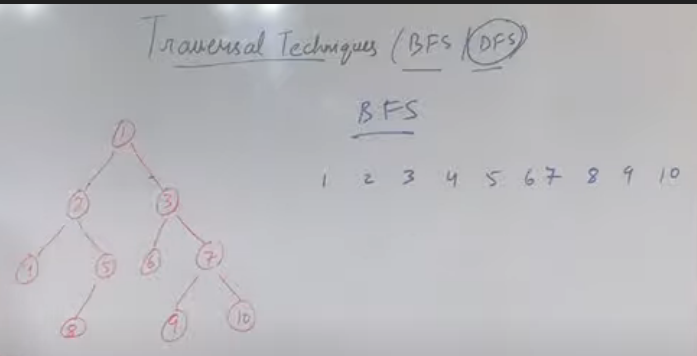 Traversal Techniques (BFS/DFS)
BFS
1 2 3 4 5 6 7 8 9 10
1
2 3
4 5 6 7
8 9 10